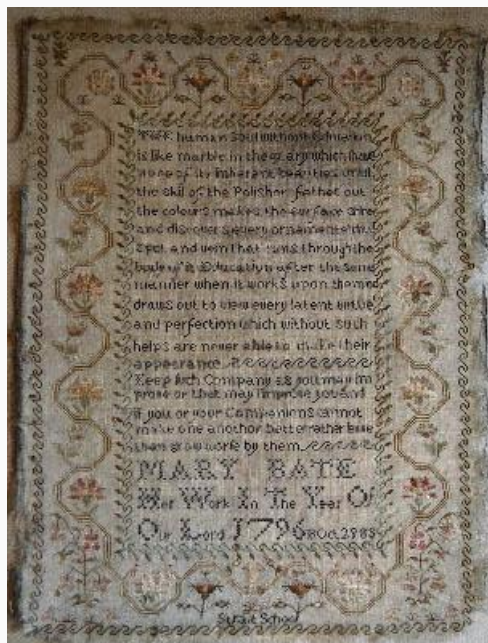 THE human Soul without Education
is like marble in the quary which shews
none of its inherent beauties until
the skil of the Polisher fetches out
the colours makes the surface shine
and discovers every ornamental
Spot and vein that runs through the
body of it Education after the same
manner when it works upon the mind
draws out to view every latent virtue
and perfection which without such
helps are never able to make their
appearance
Keep such Company as you may im
prove or that may improve you and
if you or your Companions cannot
make one another better rather leave
them grow worse by them
MARY BATE
Her Work In The Year Of
Our Lord 1796 Oct 29
School